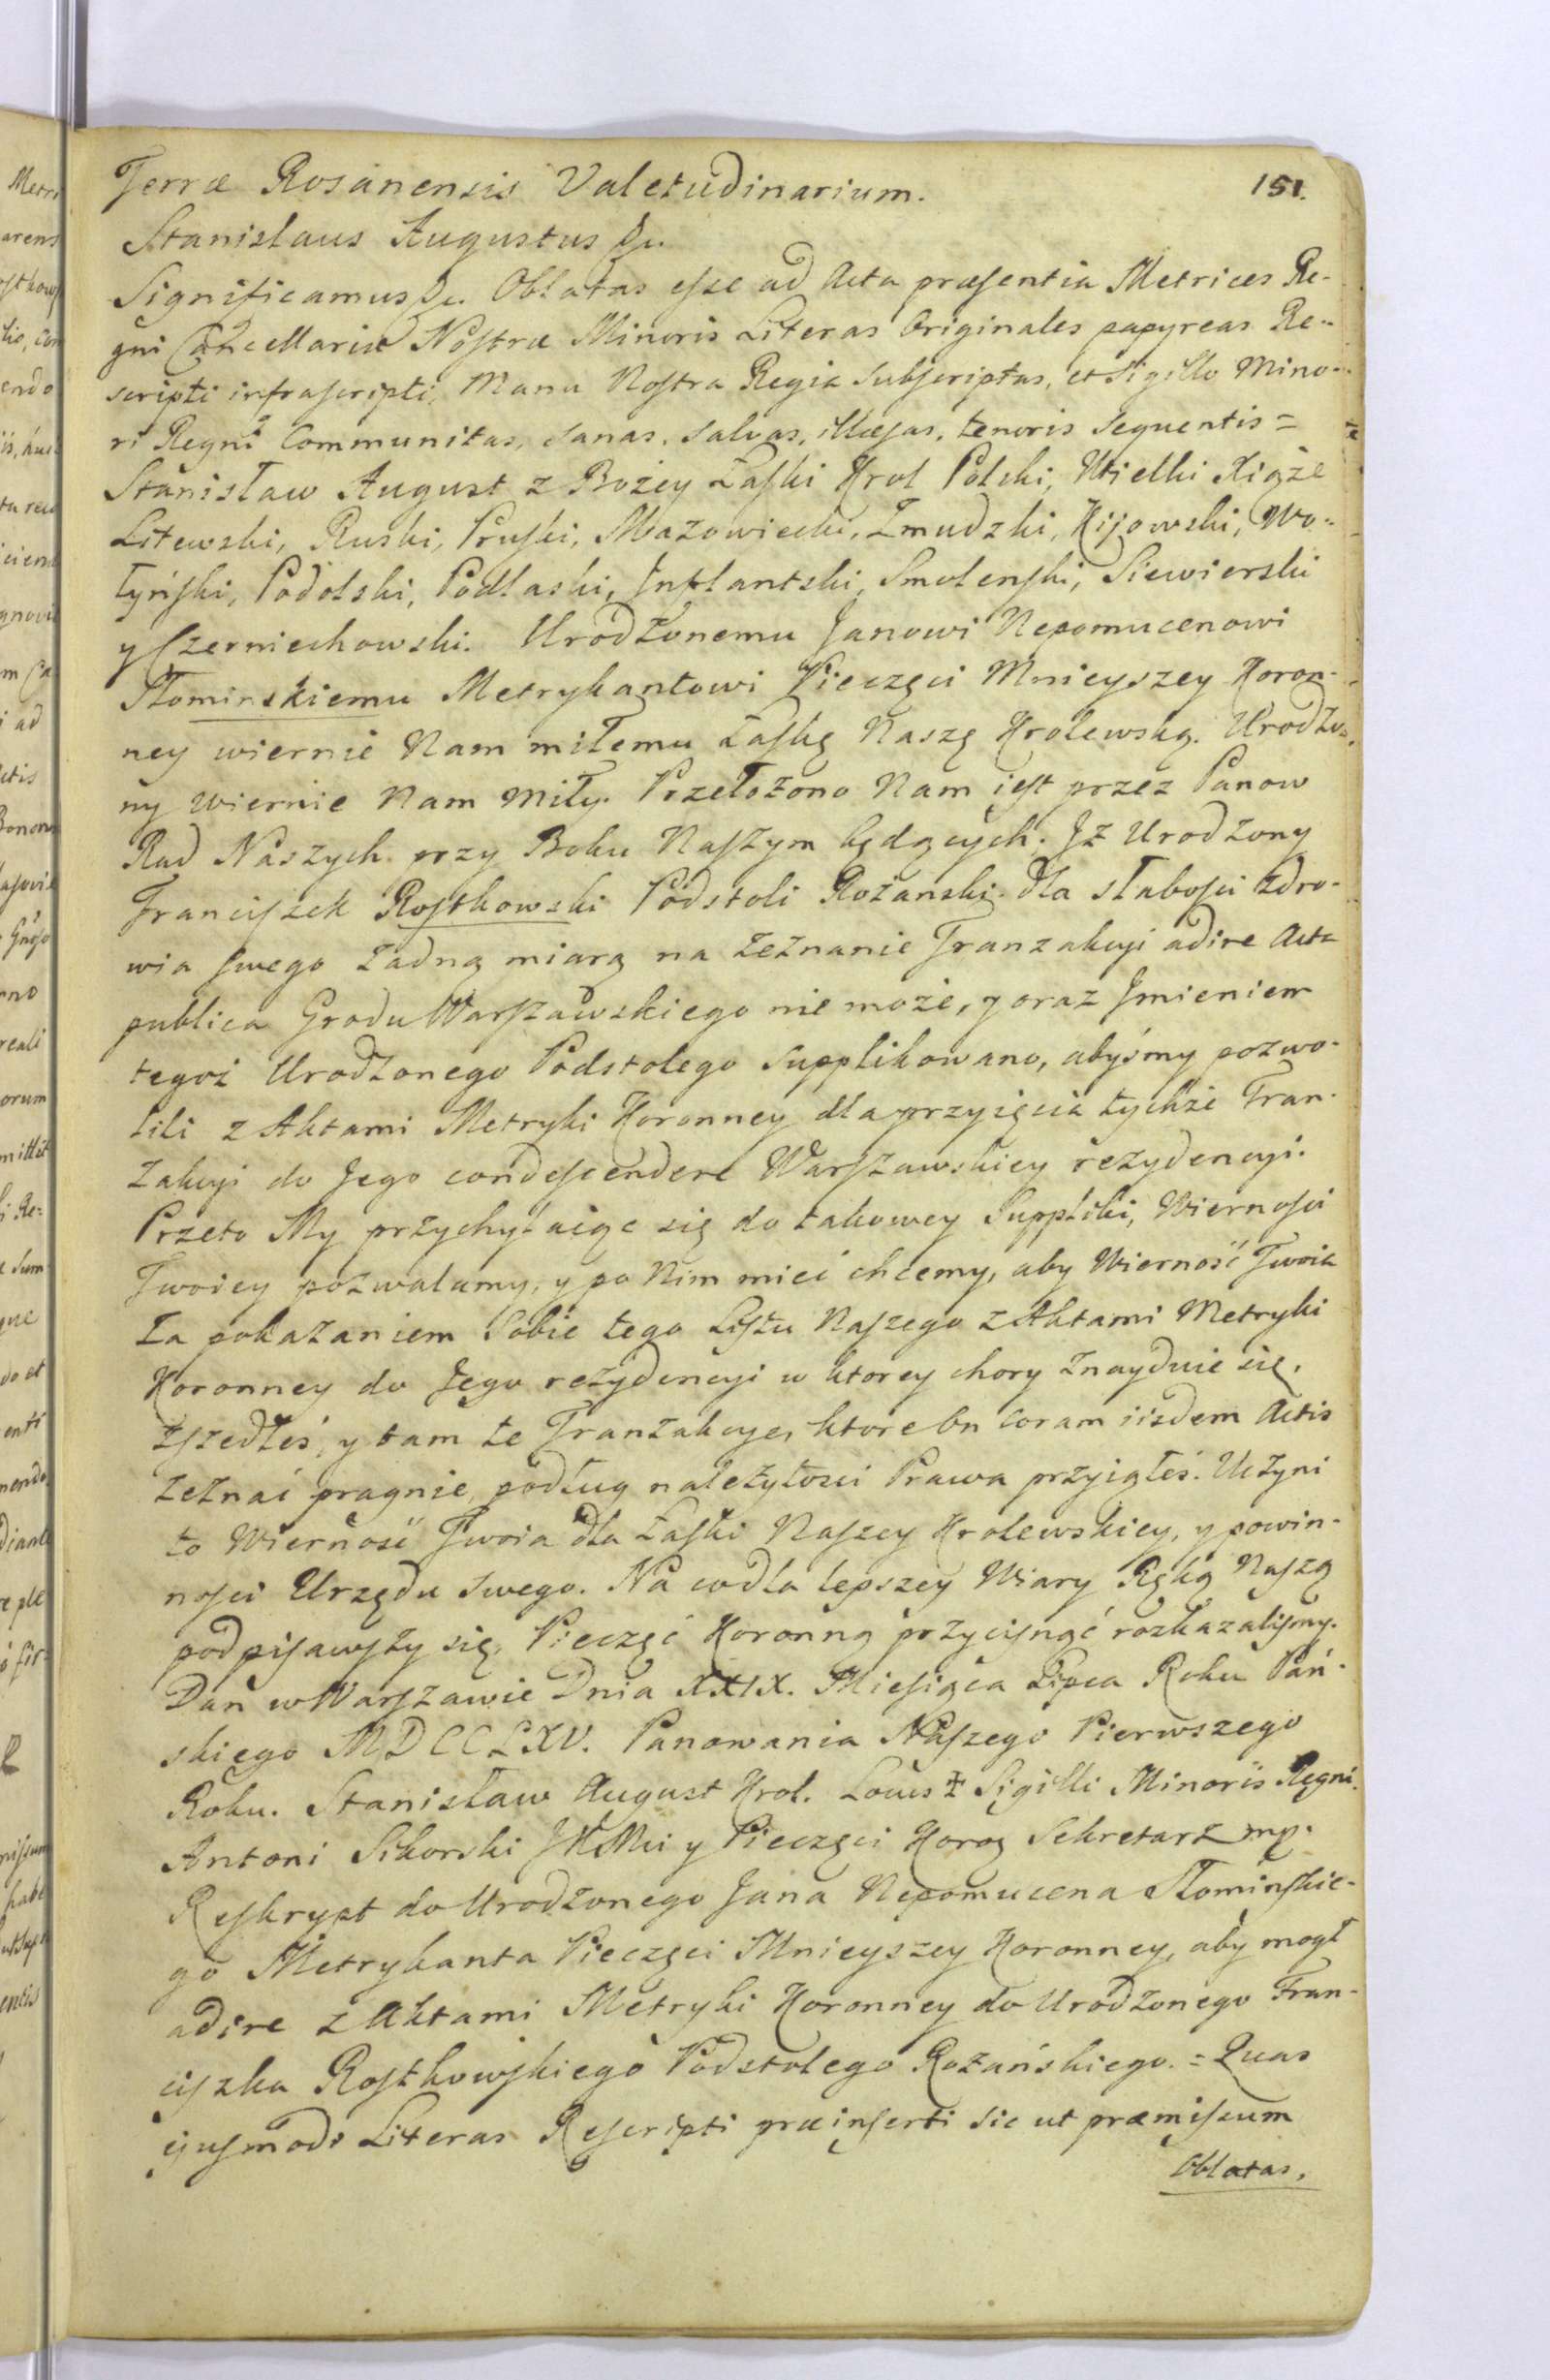 Terræ Rosanensis Valetudinarium.
151.
Stanislaus Augustus &c.
Significamus &c. Oblatas eſse ad Acta præſentia Metrices Re-
gni Cancellariæ Noſtræ Minoris Literas Originales papyreas Re-
scripti infraſcripti, Manu Noſtra Regia Subſcriptas, et Sigillo Mino-
ri Regni Communitas, sanas, salvas, illæſas, tenoris sequentis =
Stanisław August z Bożey Łaſki Krol Polski, Wielki Xiąże
Litewski, Ruski, Pruſki, Mazowiecki, Zmudzki, Kijowski, Wo-
łyńſki, Podolski, Podlaski, Inflantski, Smolenſki, Siewierski
y Czerniechowski. Urodzonemu Janowi Nepomucenowi
Słominskiemu Metrykantowi Pieczęci Mnieyszey Koron-
ney wiernie Nam miłemu Łaſkę Naszę Krolewską. Urodzo-
ny wiernie Nam miły. Przełożono Nam ieſt przez Panow
Rad Naszych przy Boku Naſzym będących. Iż Urodzony
Franciſzek Roſtkowski Podstoli Rożanski dla słaboſci zdro-
wia ſwego żadną miarą na zeznanie Tranzakcyi adire Acta
publica Grodu Warſzawskiego nie może, y oraz Imieniem
tegoż Urodzonego Podstolego Supplikowano, abyśmy pozwo-
lili z Aktami Metryki Koronney dla przyięcia tychże Tran-
zakcyi do Jego condeſcendere Warſzawskiey rezydencyi.
Przeto My przychylaiąc się do takowey Suppliki, Wiernoſci
Twoiey pozwalamy, y po Nim mieć chcemy, aby Wierność Twoia
za pokazaniem Sobie tego Liſtu Naſzego z Aktami Metryki
Koronney do Jego rezydencyi w ktorey chory znayduie się,
zſzedłeś, y tam te Tranzakcye, ktore on coram iisdem Actis
zeznać pragnie, podług należytości Prawa przyiąłeś. Uczyni
to Wierność Twoia dla Łaſki Naſzey Krolewskiey, y powin-
noſci Urzędu Swego. Na co dla lepszey Wiary Ręką Naſzą
podpiſawſzy się, Pieczęć Koronną przyciſnąć rozkazaliſmy.
Dan w Warſzawie Dnia XXIX. Mieſiąca Lipca Roku Pań-
skiego MDCCLXV. Panowania Naſzego Pierwszego
Roku. Stanisław August Krol. Locus ‡ Sigilli Minoris Regni.
Antoni Sikorski JKMci y Pieczęci Koroñ Sekretarz mp.
Reſkrypt do Urodzonego Jana Nepomucena Słominſkie-
go Metrykanta Pieczęci Mnieyszey Koronney, aby mogł
adire z Aktami Metryki Koronney do Urodzonego Fran-
ciſzka Roſtkowſkiego Podstolego Rożańskiego. = Quas
ejuſmodi Literas Reſcripti præinſerti sic ut præmiſsum
Oblatas,